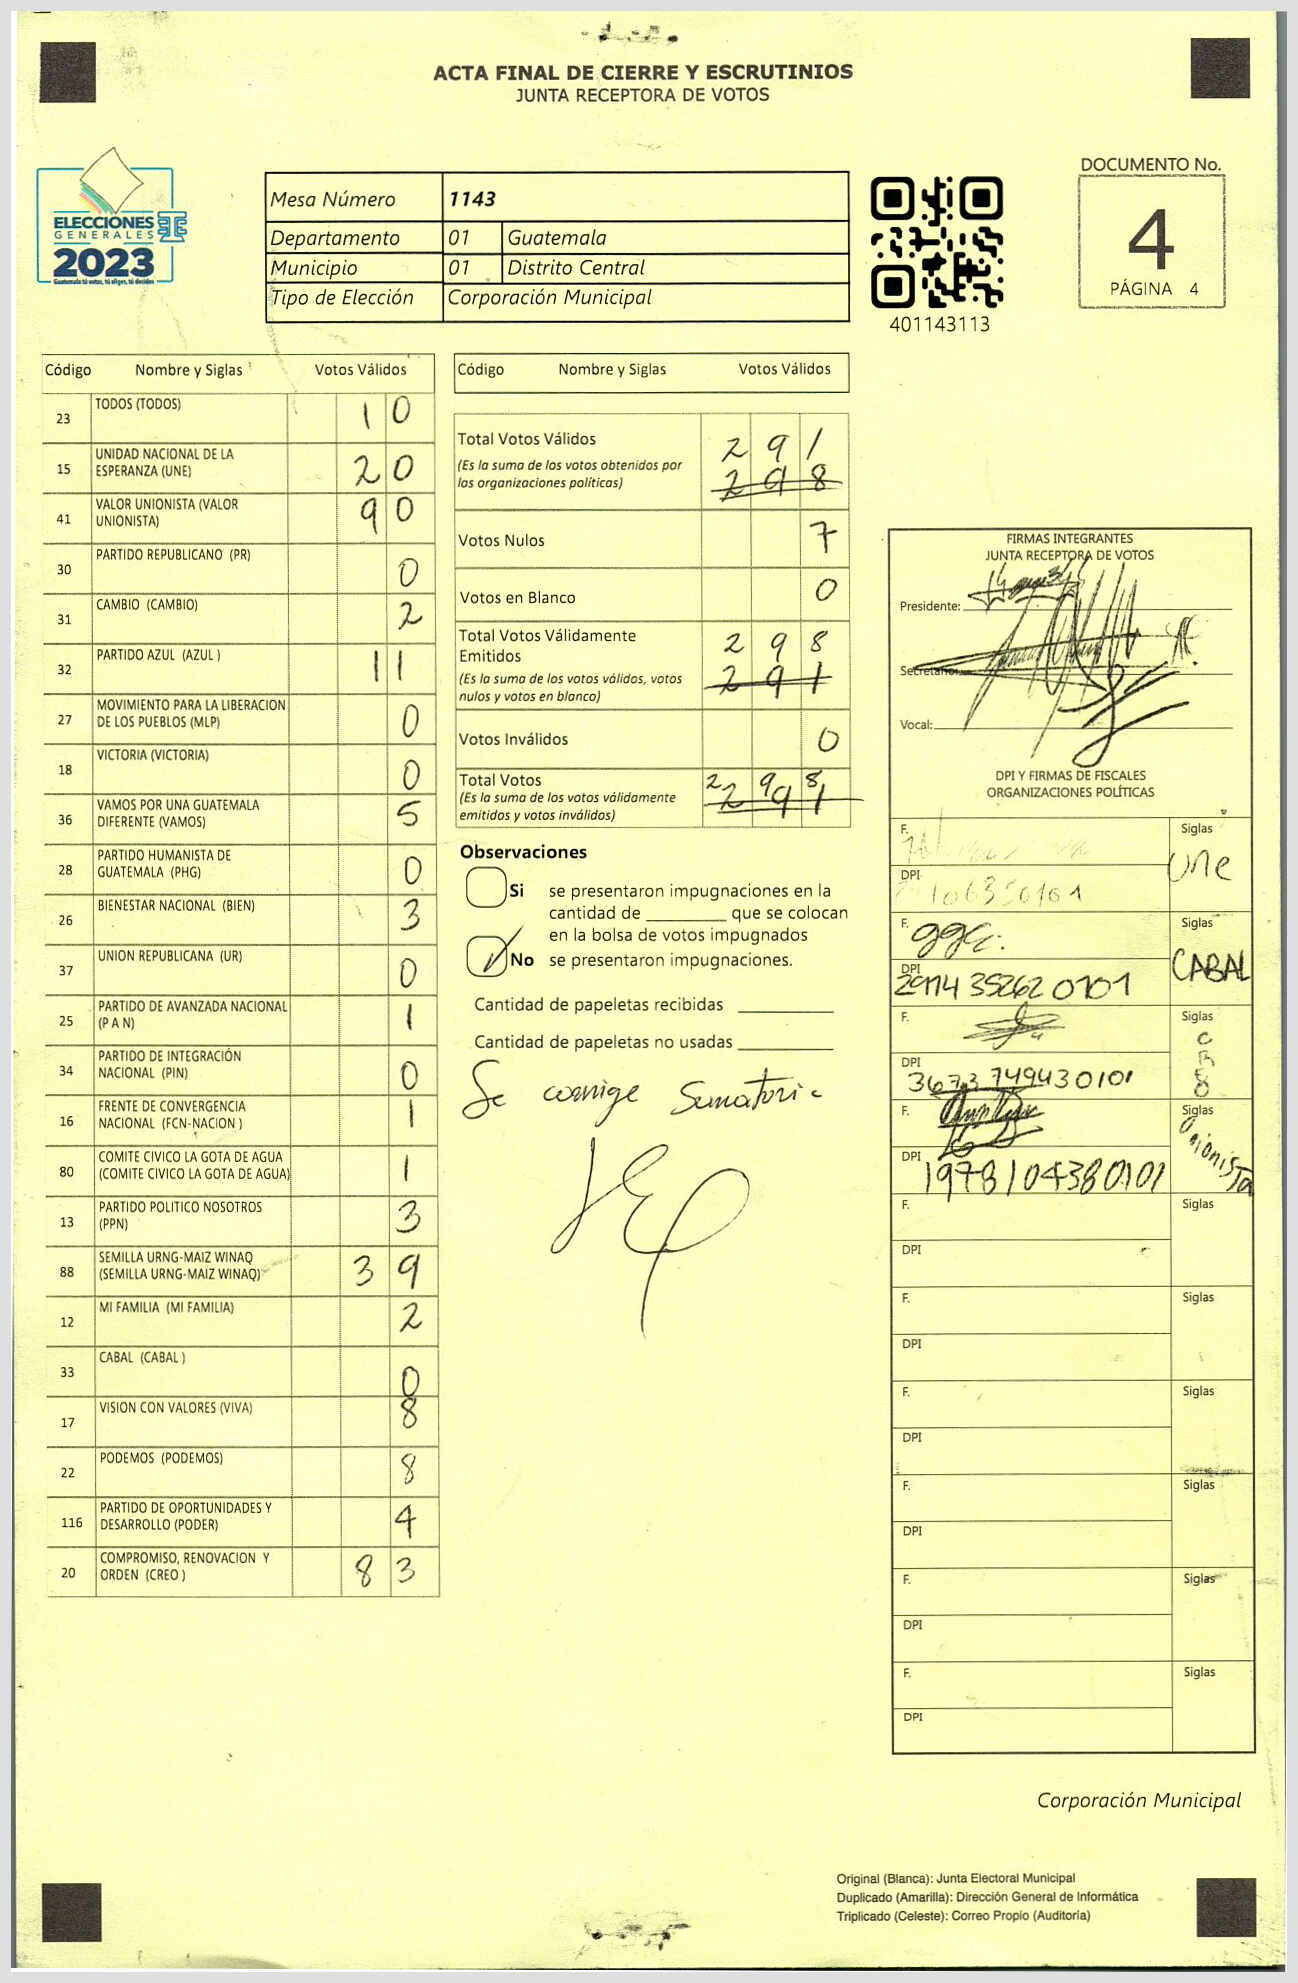 ACTA FINAL DE CIERRE Y ESCRUTINIOS
JUNTA RECEPTORA DE VOTOS
ELECCIONES
GENERALES
2023
Guatemala tú votas, tú eliges, tú decides
Mesa Número 1143
Departamento 01 Guatemala
Municipio 01 Distrito Central
Tipo de Elección Corporación Municipal
401143113
DOCUMENTO No.
4
PÁGINA 4
Código Nombre y Siglas Votos Válidos
23 TODOS (TODOS) 10
15 UNIDAD NACIONAL DE LA
ESPERANZA (UNE) 20
41 VALOR UNIONISTA (VALOR
UNIONISTA) 90
30 PARTIDO REPUBLICANO (PR) 0
31 CAMBIO (CAMBIO) 2
32 PARTIDO AZUL (AZUL ) 11
27 MOVIMIENTO PARA LA LIBERACION
DE LOS PUEBLOS (MLP) 0
18 VICTORIA (VICTORIA) 0
36 VAMOS POR UNA GUATEMALA
DIFERENTE (VAMOS) 5
28 PARTIDO HUMANISTA DE
GUATEMALA (PHG) 0
26 BIENESTAR NACIONAL (BIEN) 3
37 UNION REPUBLICANA (UR) 0
25 PARTIDO DE AVANZADA NACIONAL
(P A N) 1
34 PARTIDO DE INTEGRACIÓN
NACIONAL (PIN) 0
16 FRENTE DE CONVERGENCIA
NACIONAL (FCN-NACION ) 1
80 COMITE CIVICO LA GOTA DE AGUA
(COMITE CIVICO LA GOTA DE AGUA) 1
13 PARTIDO POLITICO NOSOTROS
(PPN) 3
88 SEMILLA URNG-MAIZ WINAQ
(SEMILLA URNG-MAIZ WINAQ) 39
12 MI FAMILIA (MI FAMILIA) 2
33 CABAL (CABAL ) 0
17 VISION CON VALORES (VIVA) 8
22 PODEMOS (PODEMOS) 8
116 PARTIDO DE OPORTUNIDADES Y
DESARROLLO (PODER) 4
20 COMPROMISO, RENOVACION Y
ORDEN (CREO ) 83
Código Nombre y Siglas Votos Válidos
Total Votos Válidos 291
(Es la suma de los votos obtenidos por
las organizaciones políticas) 298
Votos Nulos 7
Votos en Blanco 0
Total Votos Válidamente
Emitidos 298
(Es la suma de los votos válidos, votos
nulos y votos en blanco) 291
Votos Inválidos 0
Total Votos 298
(Es la suma de los votos válidamente
emitidos y votos inválidos) 291
Observaciones
Si se presentaron impugnaciones en la
cantidad de ________ que se colocan
en la bolsa de votos impugnados
No se presentaron impugnaciones.
Cantidad de papeletas recibidas
Cantidad de papeletas no usadas
Se corrige Sumatoria
FIRMAS INTEGRANTES
JUNTA RECEPTORA DE VOTOS
Presidente:
Secretario:
Vocal:
DPI Y FIRMAS DE FISCALES
ORGANIZACIONES POLÍTICAS
F. Siglas
DPI une
F. Siglas
DPI CABAL
F. Siglas
DPI 3673749430101
F. Siglas
Unionista
DPI 1978104380101
F. Siglas
DPI
F. Siglas
DPI
F. Siglas
DPI
F. Siglas
DPI
F. Siglas
DPI
F. Siglas
DPI
Corporación Municipal
Original (Blanca): Junta Electoral Municipal
Duplicado (Amarilla): Dirección General de Informática
Triplicado (Celeste): Correo Propio (Auditoría)